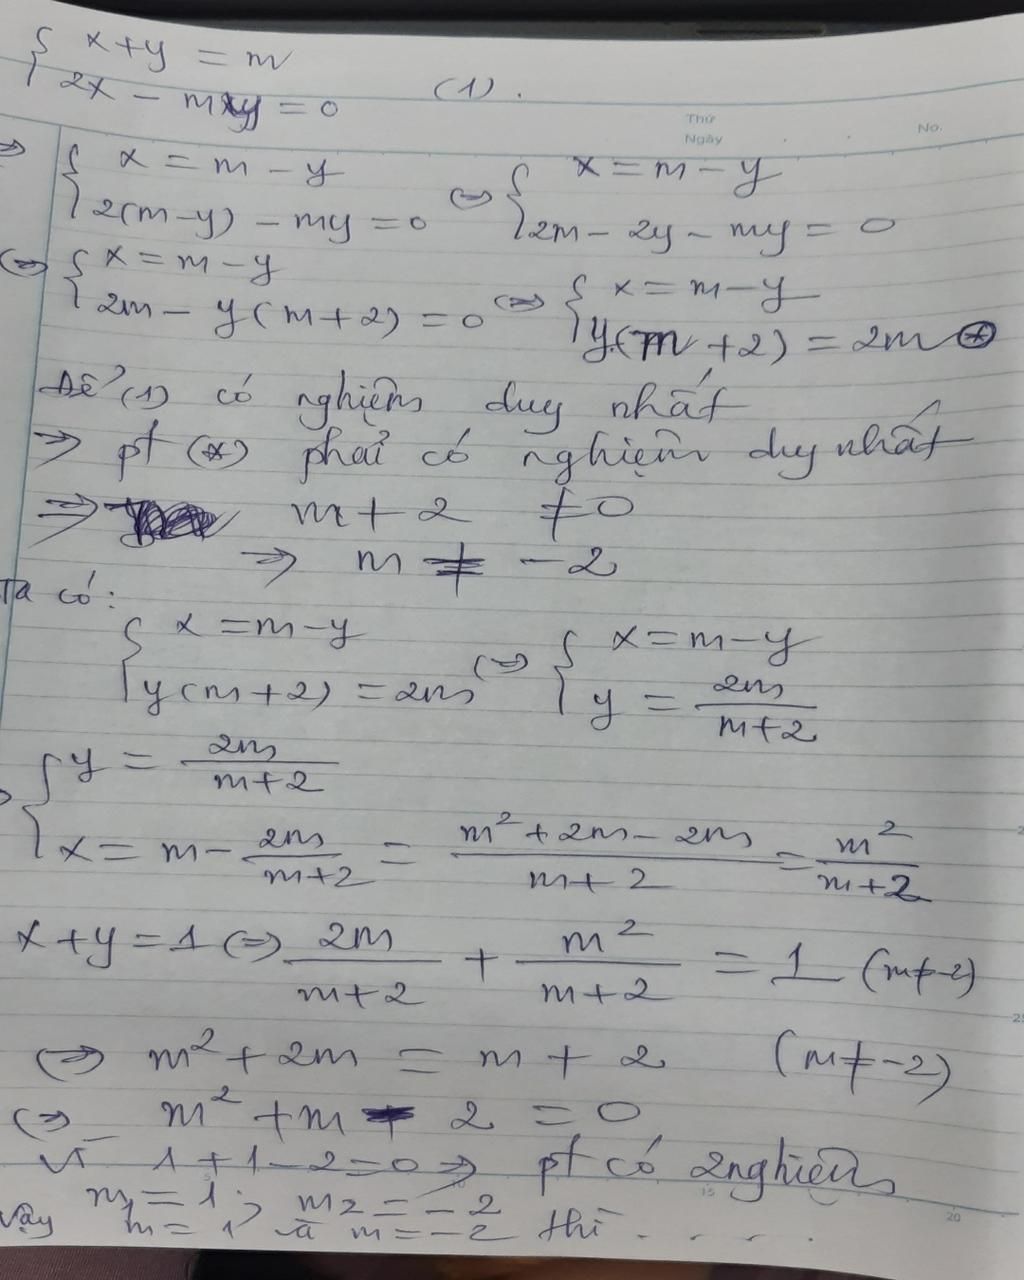 { x+y = m
{ 2x - my = 0 (1).
Thứ
Ngày No.
=> { x = m - y <=> { x = m - y
{ 2(m-y) - my = 0 { 2m - 2y - my = 0
<=> { x = m - y <=> { x = m - y
{ 2m - y(m+2) = 0 { y(m+2) = 2m (*)
Để (1) có nghiệm duy nhất
=> pt (*) phải có nghiệm duy nhất
=> m + 2 ≠ 0
=> m ≠ -2
Ta có:
{ x = m - y <=> { x = m - y
{ y(m+2) = 2m { y = 2m/(m+2)
{ y = 2m/(m+2)
{ x = m - 2m/(m+2) = (m² + 2m - 2m)/(m+2) = m²/(m+2)
x + y = 1 <=> 2m/(m+2) + m²/(m+2) = 1 (m≠-2)
<=> m² + 2m = m + 2 (m≠-2)
<=> m² + m - 2 = 0
Vì 1 + 1 - 2 = 0 => pt có 2 nghiệm
m₁ = 1 ; m₂ = -2
Vậy m = 1 và m = -2 thì . . . . .
15
20